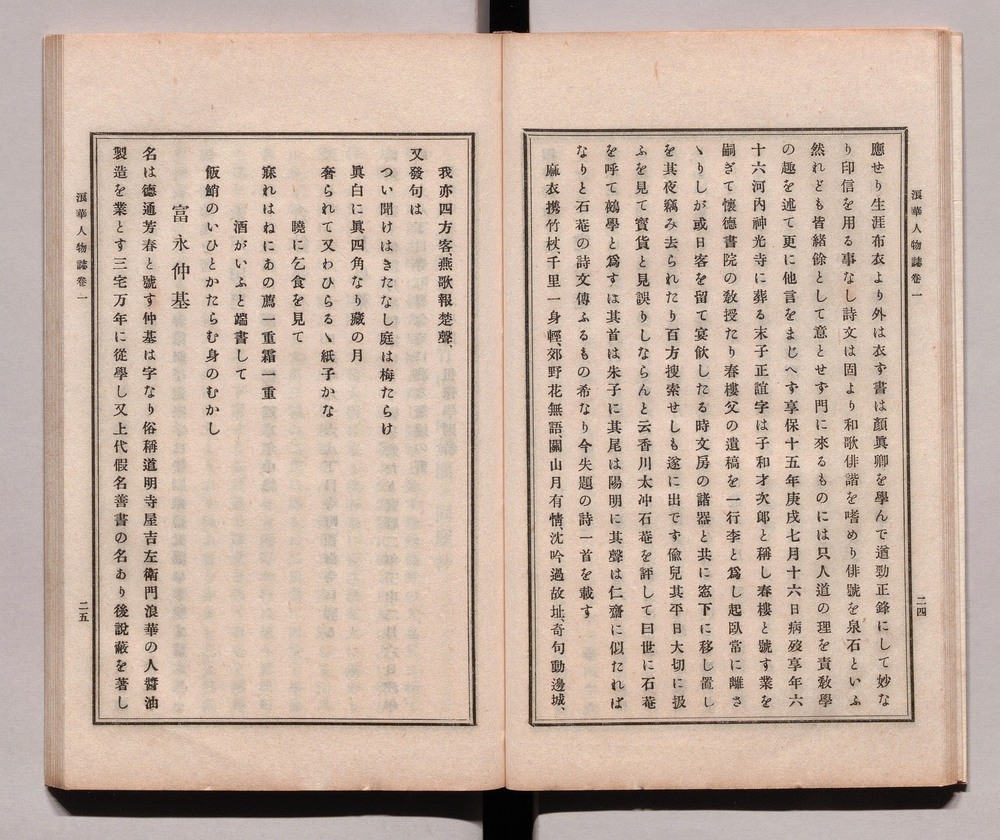 浪華人物誌卷一
二四
應せり生涯布衣より外は衣す書は顏眞卿を學んで遒勁正鋒にして妙な
り印信を用る事なし詩文は固より和歌俳諧を嗜めり俳號を泉石といふ
然れども皆緒餘として意とせず門に來るものには只人道の理を責敎學
の趣を述て更に他言をまじへす享保十五年庚戌七月十六日病歿享年六
十六河內神光寺に葬る末子正誼字は子和才次郞と稱し春樓と號す業を
嗣ぎて懷德書院の敎授たり春樓父の遺稿を一行李と爲し起臥常に離さ
ゝりしが或日客を留て宴飮したる時文房の諸器と共に窓下に移し置し
を其夜竊み去られたり百方搜索せしも遂に出です偸兒其平日大切に扱
ふを見て寳貨と見誤りしならんと云香川太冲石菴を評して曰世に石菴
を呼て鵺學と爲すは其首は朱子に其尾は陽明に其聲は仁齋に似たれば
なりと石菴の詩文傳ふるもの希なり今失題の詩一首を載す
麻衣携竹杖、千里一身輕、郊野花無語、關山月有情、沈吟過故址、奇句動邊城、
我亦四方客、燕歌報楚聲、
又發句は
つい聞けはきたなし庭は梅たらけ
眞白に眞四角なり藏の月
奢られて又わひらるゝ紙子かな
曉に乞食を見て
寐れはねにあの薦一重霜一重
酒がいふと端書して
飯鮹のいひとかたらむ身のむかし
富永仲基
名は德通芳春と號す仲基は字なり俗稱道明寺屋吉左衞門浪華の人醬油
製造を業とす三宅万年に從學し又上代假名善書の名あり後說蔽を著し
浪華人物誌卷一
二五